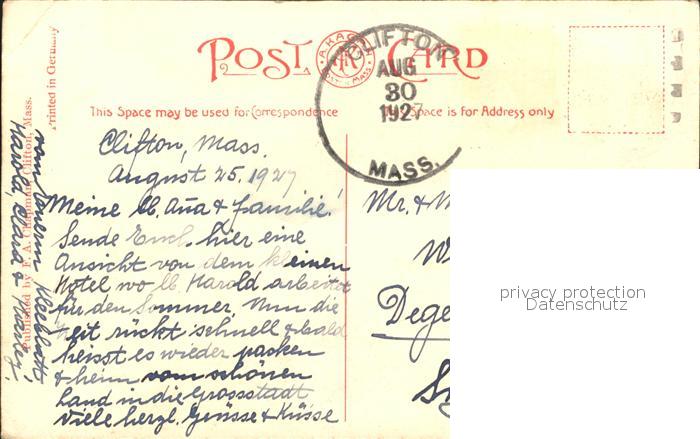 POST CARD
A. KAGAN
CLIFTON
AUG
30
1927
MASS.
This Space may be used for Correspondence
This Space is for Address only
Printed in Germany
Published by F. A. Chapman, Clifton, Mass.
Clifton, Mass.
August 25. 1927
Meine lb. Aña & Familie!
Sende Euch hier eine
Ansicht von dem kleinen
Hotel wo lb. Harold arbeitet
für den Sommer. Nun die
Zeit rückt schnell & bald
heisst es wieder packen
& heim vom schönen
Land in die Grossstadt
viele herzl. Grüsse & Küsse
Harold, Clara &
Mr. & M
W
Dege
privacy protection
Datenschutz